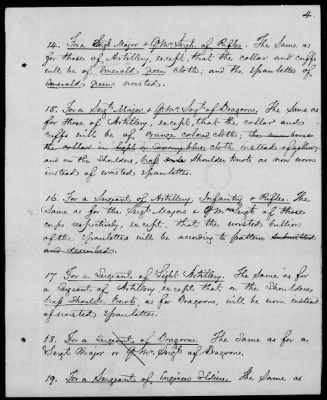 4.
14. For a Sergt Major & Qr Mr Sergt of Rifles. The Same as
for those of Artillery, except, that the collar and cuffs
will be of Emerald green cloth; and the Epaulettes of
Emerald green worsted.
15. For a Sergt Major & Qr Mr Sergt of Dragoons, The Same as
for those of Artillery, except, that the collar and
cuffs will be of orange colored cloth,
the collar in cloth instead of yellow;
and on the Shoulders, brass Shoulder Knots as now worn
instead of worsted epaulettes.
16. For a Sergeant of Artillery, Infantry or Rifles. The
Same as for the Sergt Majors & Qr Mr Sergt of those
corps respectively, except, that the worsted bullion
of the Epaulettes will be according to pattern
and described.
17. For a Sergeant of Light Artillery. The Same as for
a Sergeant of Artillery except that on the Shoulders,
brass Shoulder Knots, as for Dragoons, will be worn instead
of worsted Epaulettes.
18. For a Sergeant of Dragoons. The Same as for a
Sergt Major or Qr Mr Sergt of Dragoons.
19. For a Sergeant of Engineer Soldiers. The Same as